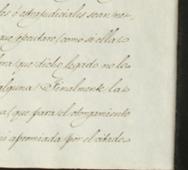 les ó extrajudiciales sean ne-
que executare, como si ella
bra, que dicho legado no le
alguna. Finalmente la
a, que para el otorgamiento
ni apremiada por el citado